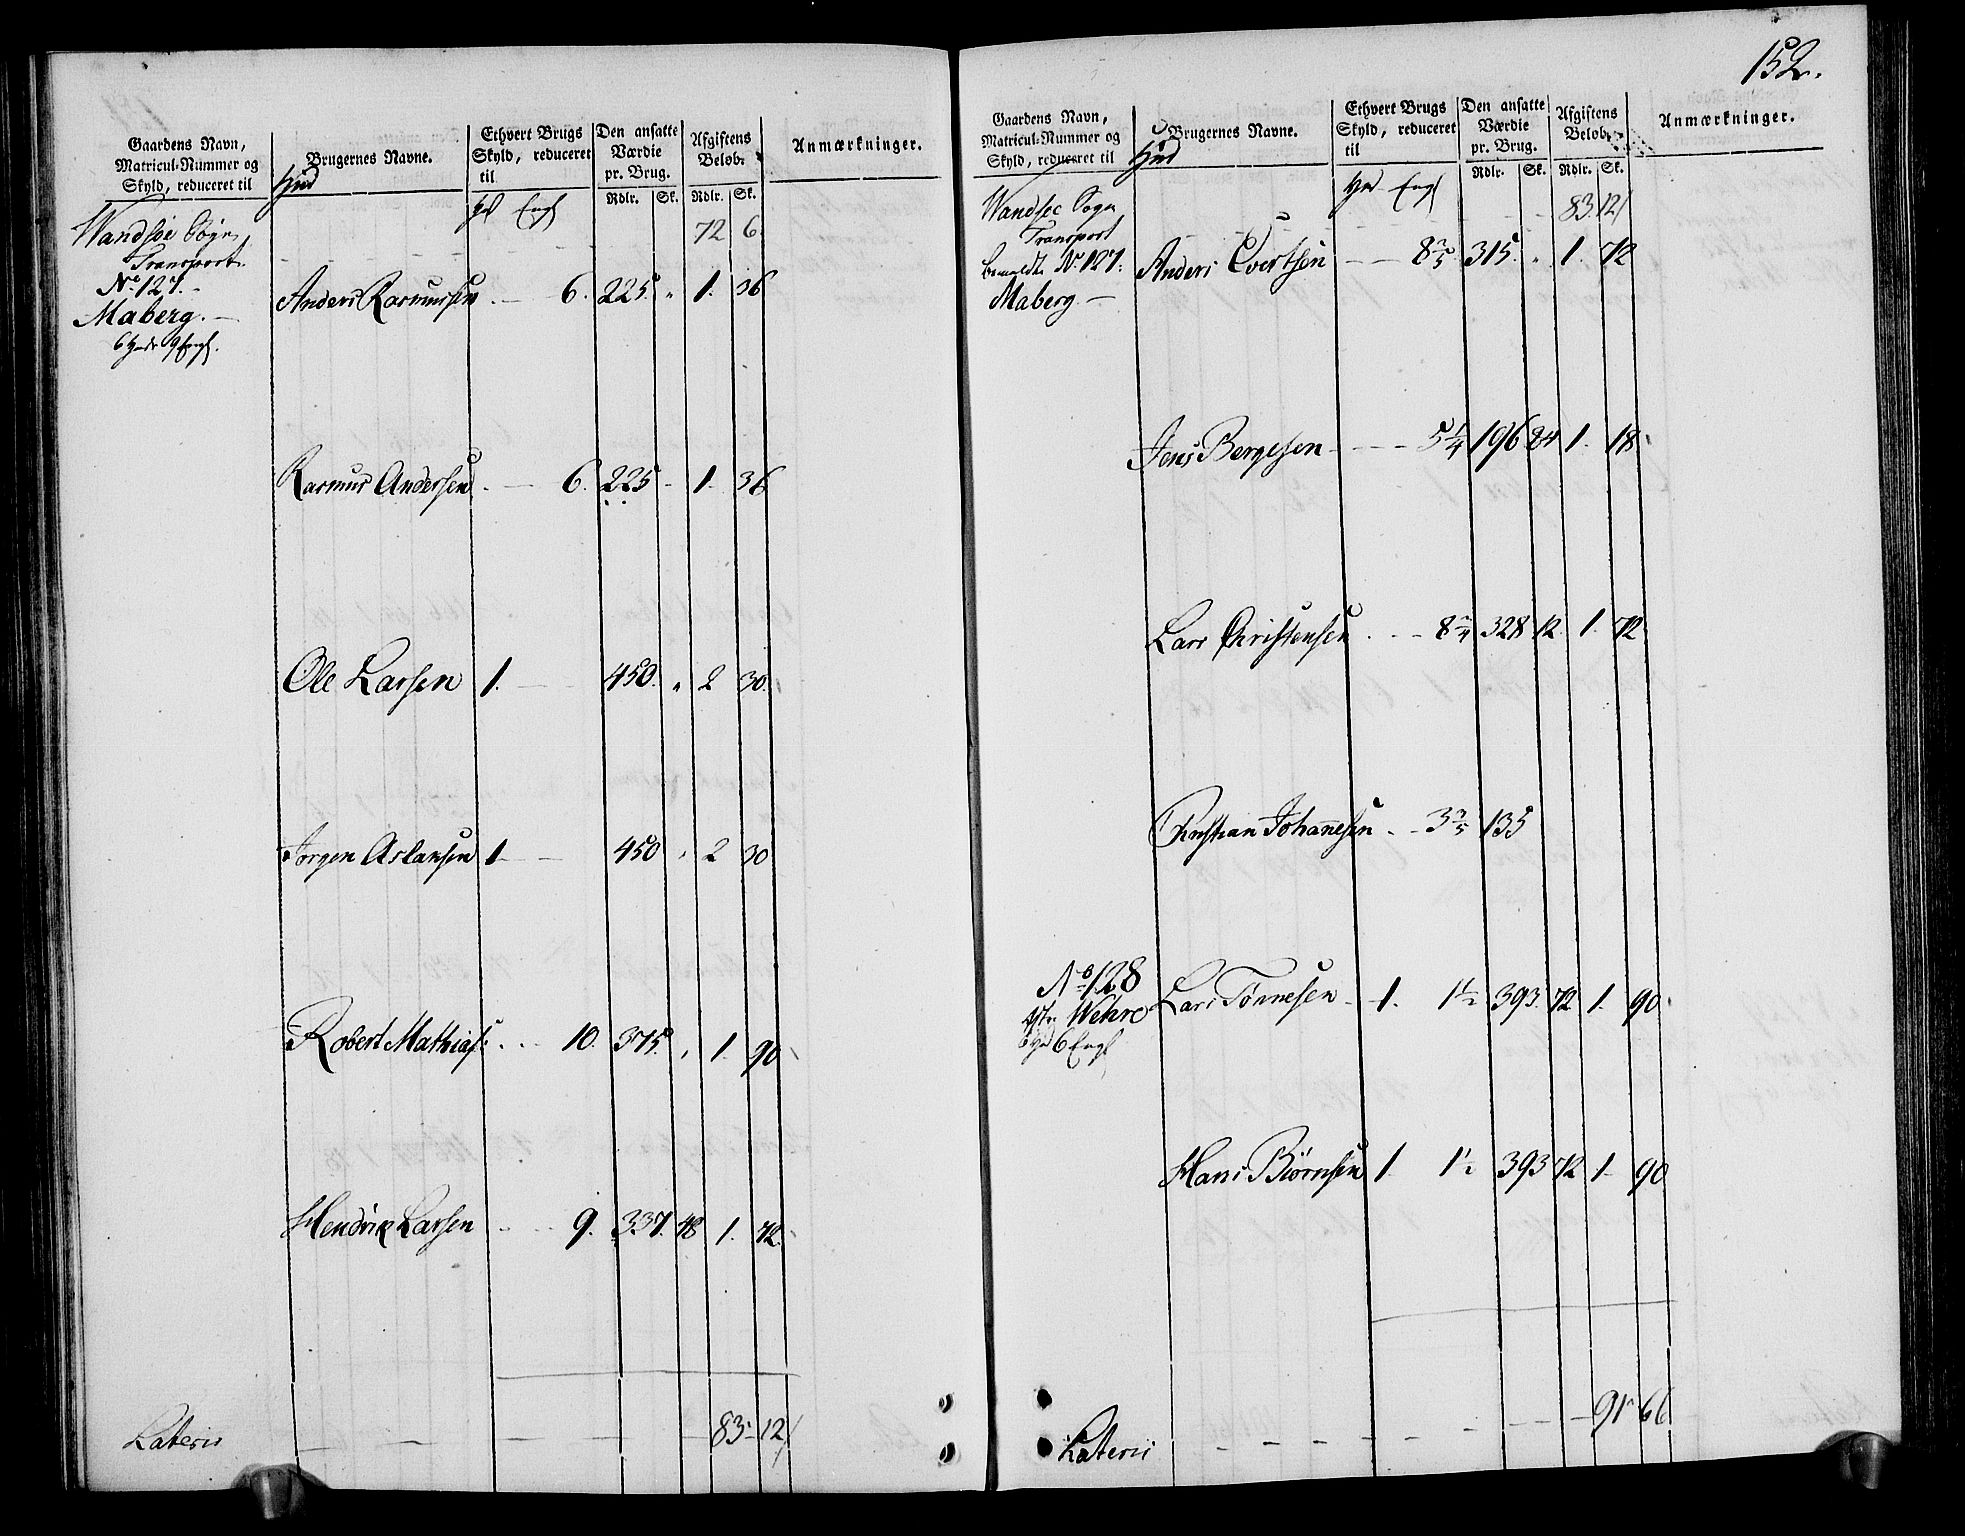 Gaardens Navn, Matricul-Nummer og Skyld, reduceret til
Hud
Brugernes Navne.
Ethvert Brugs Skyld, reduceret til
Hud Engl
Den ansatte Værdie pr. Brug.
Rdlr. Sk.
Afgiftens Beløb.
Rdlr. Sk.
Anmærkninger.
Wandsøe Sogn,
Transport. 72 6
No 127.
Maberg.
6 Hude 9 Engl.
Anders Rasmussen 6. 225. " 1. 36
Rasmus Andersen 6. 225 - 1. 36
Ole Larsen 1. 450. " 2 30
Jørgen Aslaksen 1 450 " 2 30
Robert Mathias: 10. 375. " 1. 90
Hendrik Larsen 9. 337. 48 1. 72.
Lateris 83 12
152.
Gaardens Navn, Matricul-Nummer og Skyld, reduceret til
Hud
Brugernes Navne.
Ethvert Brugs Skyld, reduceret til
Hud Engl
Den ansatte Værdie pr. Brug.
Rdlr. Sk.
Afgiftens Beløb.
Rdlr. Sk.
Anmærkninger.
Wandsøe Sogn
Transport 83 12
bemeldte No 127.
Maberg
Anders Evertsen 8 2/5 315. " 1. 72
Jens Bergesen 5 1/4 196 84 1. 18
Lars Christensen 8 3/4 328 12. 1. 72
Christian Johannesen 3 3/5 135
No 128
Wehre
6 Engl
Lars Tønnesen 1. 1 1/2 393. 72 1. 90
Hans Biørnsen 1. 1 1/2 393 72 1. 90
Lateris 91 66